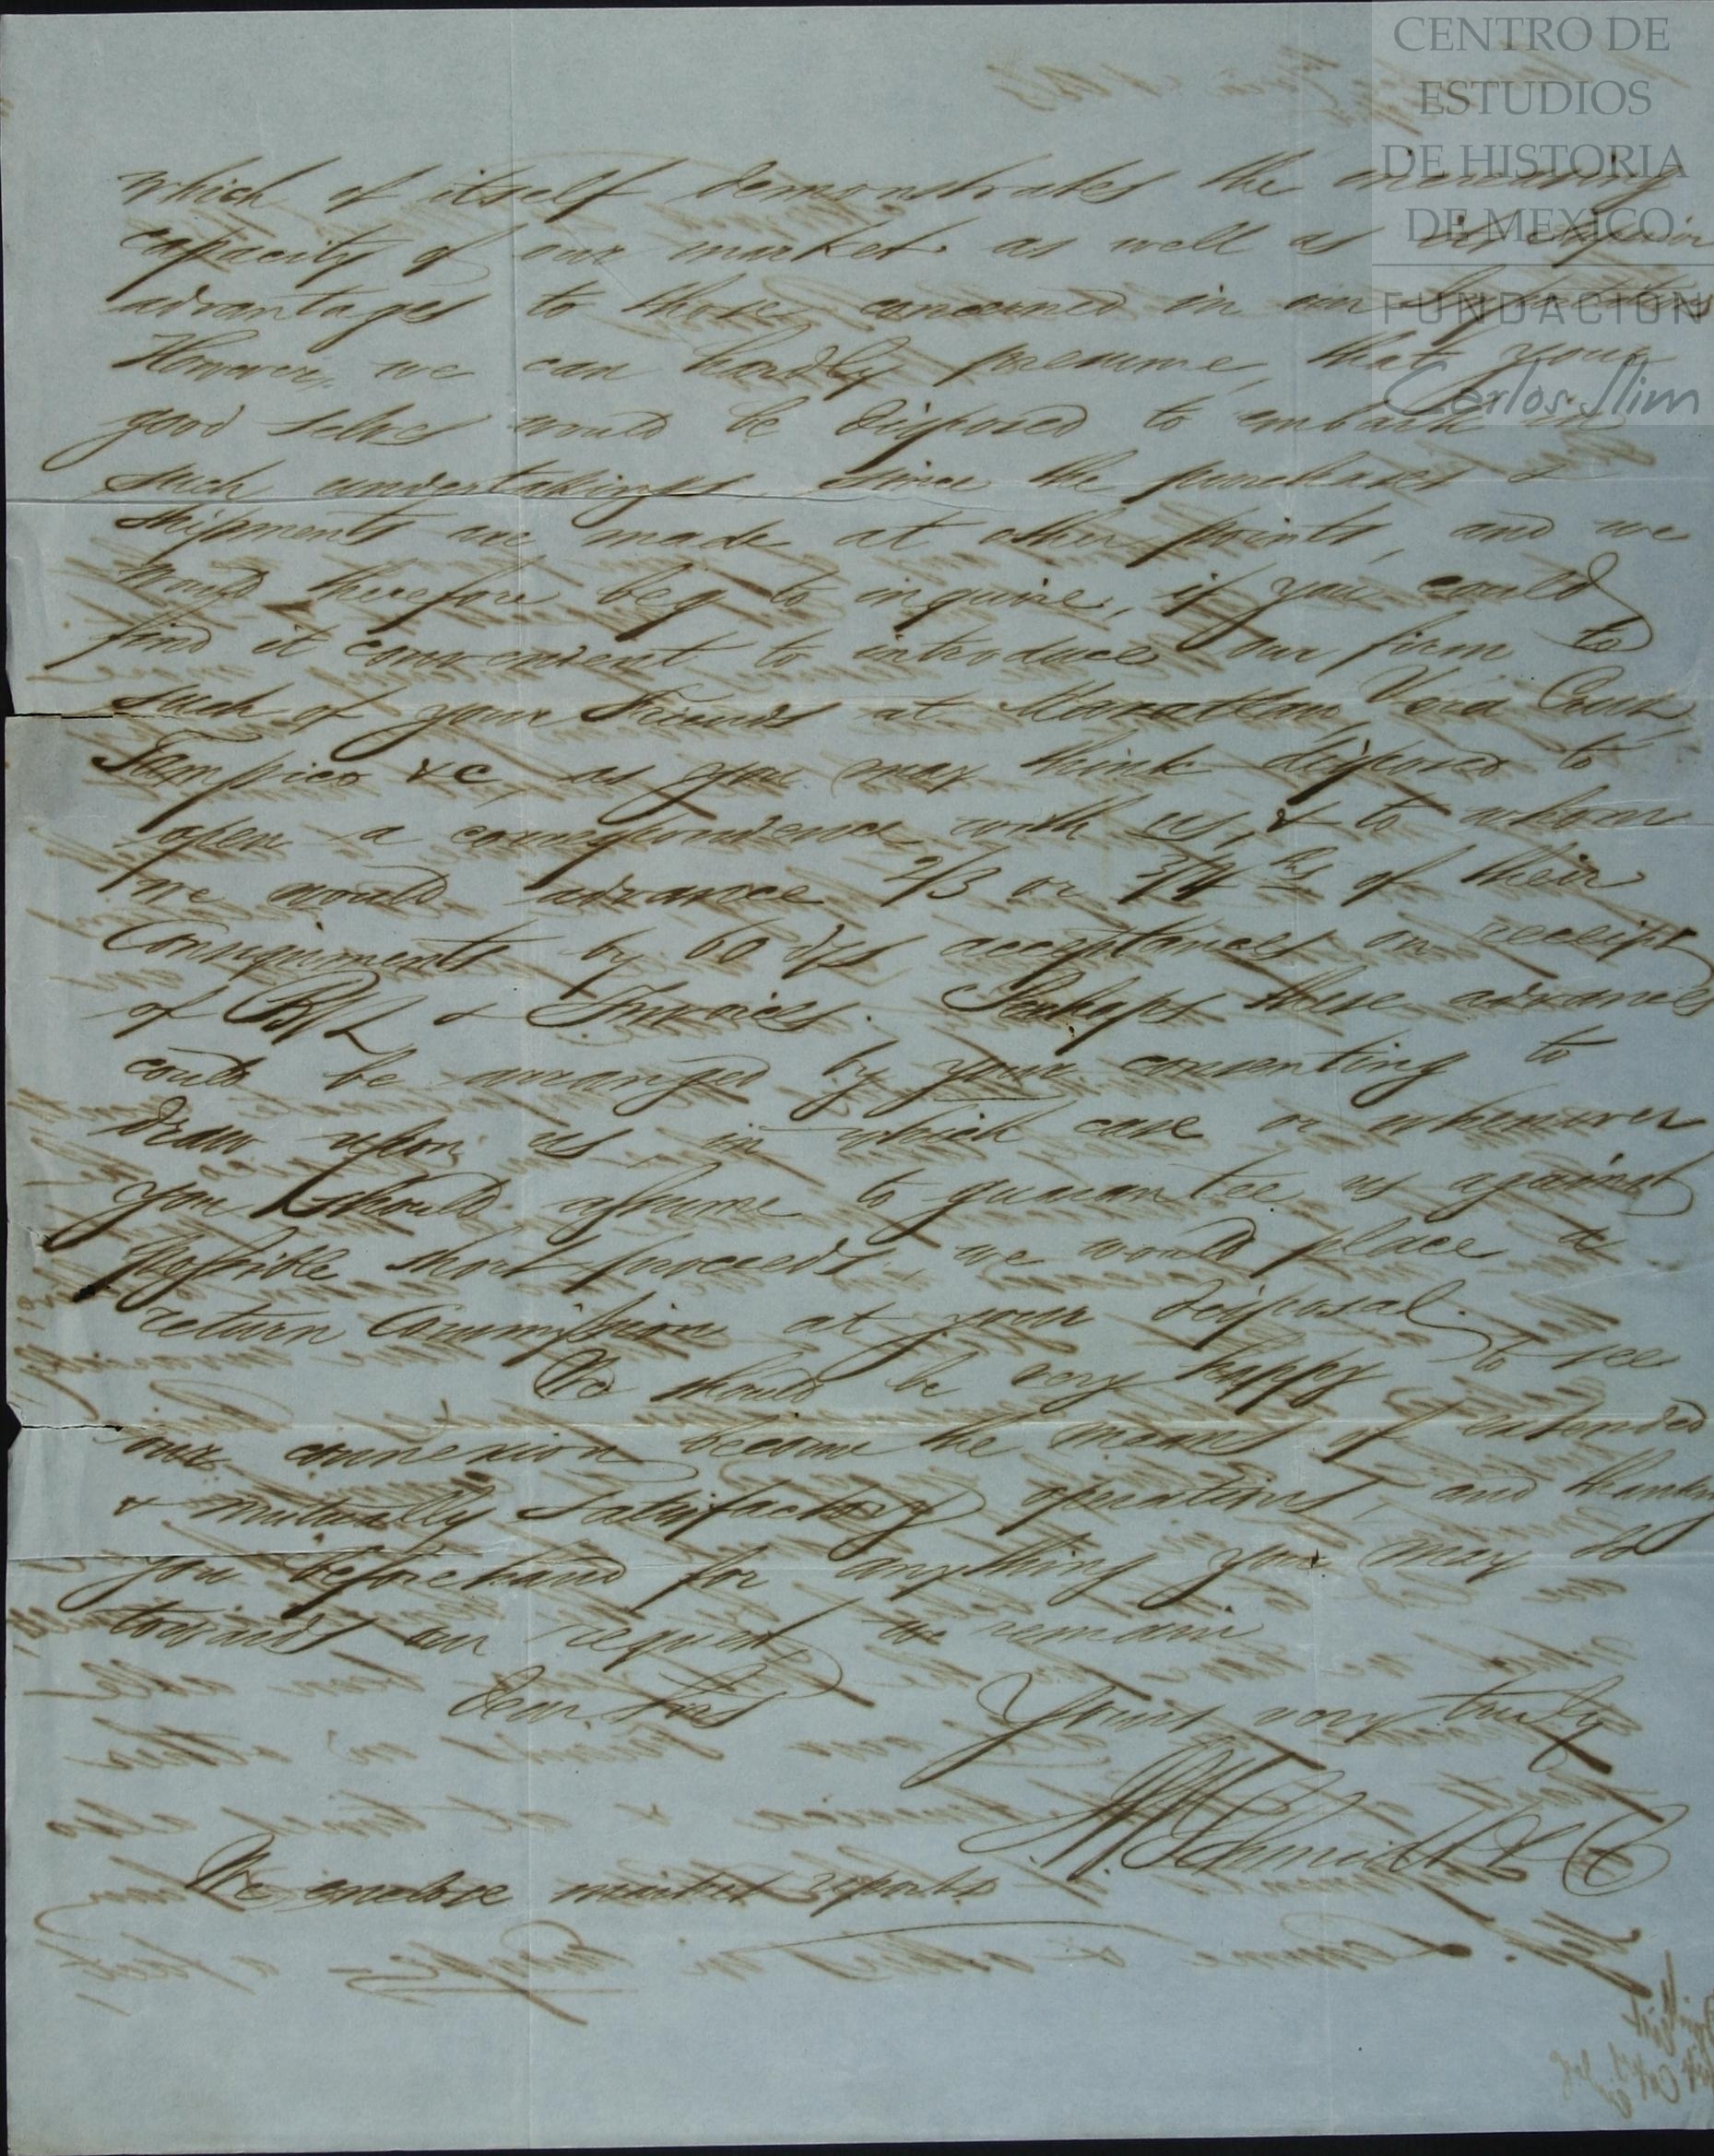 CENTRO DE
ESTUDIOS
DE HISTORIA
DE MEXICO
FUNDACION
Carlos Slim
which of itself demonstrates the increasing
capacity of our market as well as its superior
advantages to those concerned in
However, we can hardly presume, that your
good selves would be disposed to embark in
such undertakings, since the purchases &
shipments are made at other points, and we
would therefore beg to inquire, if you could
find it convenient to introduce our firm to
such of your Friends at Mazatlan, Vera Cruz,
Tampico &c, as you may think disposed to
open a correspondence with us, & to whom
we would advance 2/3 or 3/4ths of their
Consignments by 60 d/s acceptances on receipt
of B/L & Invoices. Perhaps these advances
could be arranged by your consenting to
draw upon us in which case or whenever
you should assume to guarantee us against
possible short proceeds, we would place a
return Commission at your disposal.
We should be very happy to see
our connexion become the means of extended
& mutually satisfactory operations, and thanking
you beforehand for anything you may do
towards our request, we remain
Dear Sirs
Yours very truly
Schmidt & Co
We enclose market reports